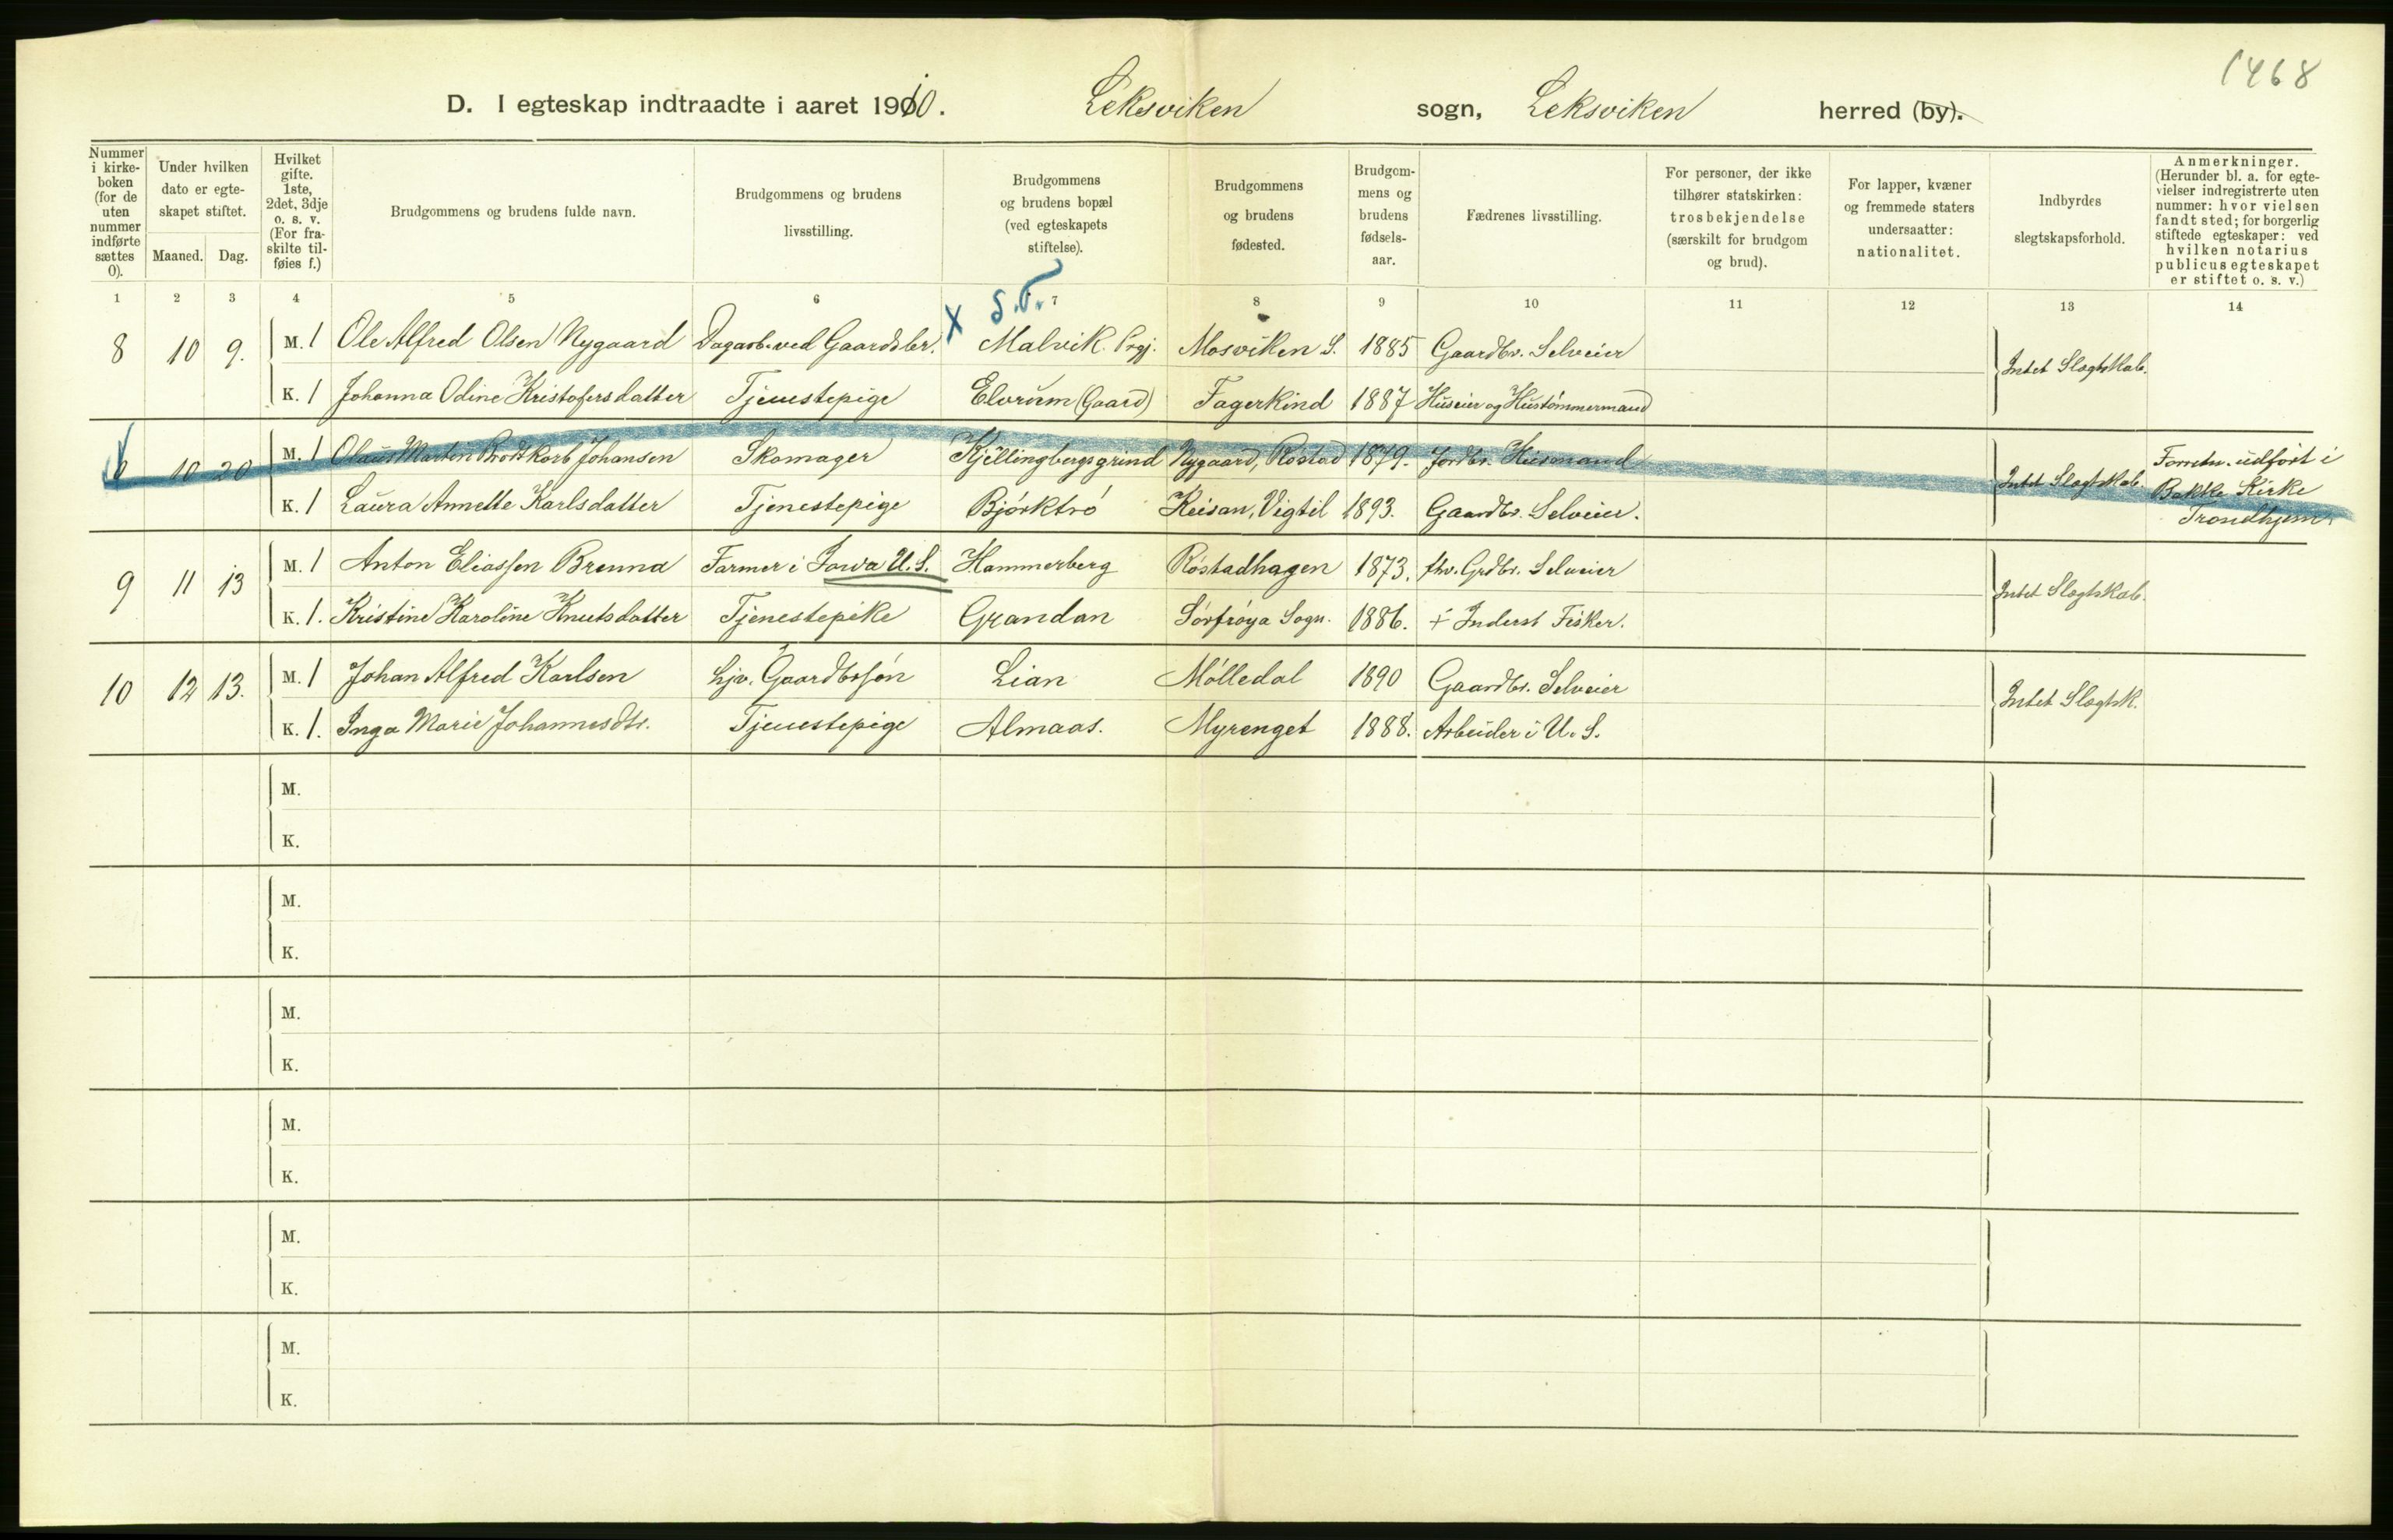 1468
D. I egteskap indtraadte i aaret 1910. Leksviken sogn, Leksviken herred (by).
Nummer i kirke-boken (for de uten nummer indførte sættes 0).
Under hvilken dato er egte-skapet stiftet.
Maaned. Dag.
Hvilket gifte. 1ste, 2det, 3dje o. s. v. (For fra-skilte til-føies f.)
Brudgommens og brudens fulde navn.
Brudgommens og brudens livsstilling.
Brudgommens og brudens bopæl (ved egteskapets stiftelse).
Brudgommens og brudens fødested.
Brudgom-mens og brudens fødsels-aar.
Fædrenes livsstilling.
For personer, der ikke tilhører statskirken: trosbekjendelse (særskilt for brudgom og brud).
For lapper, kvæner og fremmede staters undersaatter: nationalitet.
Indbyrdes slegtskapsforhold.
Anmerkninger. (Herunder bl. a. for egte-vielser indregistrerte uten nummer: hvor vielsen fandt sted; for borgerlig stiftede egteskaper: ved hvilken notarius publicus egteskapet er stiftet o. s. v.)
1 2 3 4 5 6 7 8 9 10 11 12 13 14
X S.T.
8 10 9. M. 1 Ole Alfred Olsen Nygaard Dagarb. ved Gaardsbr. Malvik Prgj. Mosviken S. 1885 Gaardbr. Selveier Intet Slægtskab.
K. 1 Johanna Odine Kristofersdatter Tjenestepige Elvrum (Gaard) Fagerkind 1887 Huseier og Hustømmermand
0 10 20 M. 1 Olaus Martin Brodtkorb Johansen Skomager Kjellingbergsgrind Nygaard, Røstad 1879. Jordbr. Husmand Intet Slægtskab. Forretn. udført i
K. 1 Laura Annette Karlsdatter Tjenestepige Bjørktrø Keisan, Vigtil 1893. Gaardbr. Selveier. Bakke Kirke
Trondhjem.
9 11 13 M. 1 Anton Eliassen Brenna Farmer i Iowa U.S. Hammerberg Røstadhagen 1873. fhv. Grdbr. Selveier Intet Slægtskab.
K. 1. Kristine Karoline Knutsdatter Tjenestepike Grandan Sørfrøya Sogn. 1886. + Inderst Fisker.
10 12 13. M. 1 Johan Alfred Karlsen hjv. Gaardbrsøn Lian Mølledal 1890 Gaardbr. Selveier Intet Slægtsk.
K. 1. Inga Marie Johannesdtr. Tjenestepige Almaas. Myrenget 1888. Arbeider i U. S.
M.
K.
M.
K.
M.
K.
M.
K.
M.
K.
M.
K.